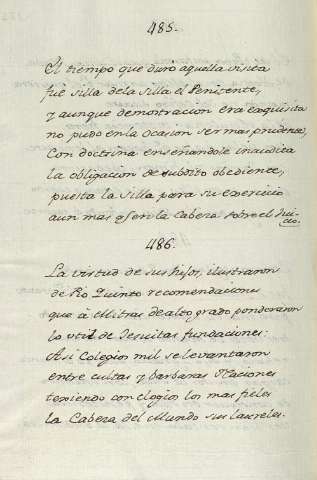 485.
El tiempo que duró aquella visita
fue silla dela silla el Penitente,
y aunque demostracion era exquisita
no pudo en la ocasion ser mas prudente,
Con doctrina enseñandole inaudita
la obligacion de subdito obediente,
puesta la silla para su exercicio
aun mas q̃ en la Cabeza sobre el Jui-
cio.
486.
La virtud de sus hijos, ilustraron
de Pio Quinto recomendaciones
que á Mitras de alto grado ponderaron
lo util de Jesuitas fundaciones:
Asi Colegios mil se levantaron
entre cultas y barbaras Naciones
texiendo con elogios los mas fieles
la Cabeza del Mundo sus laureles.